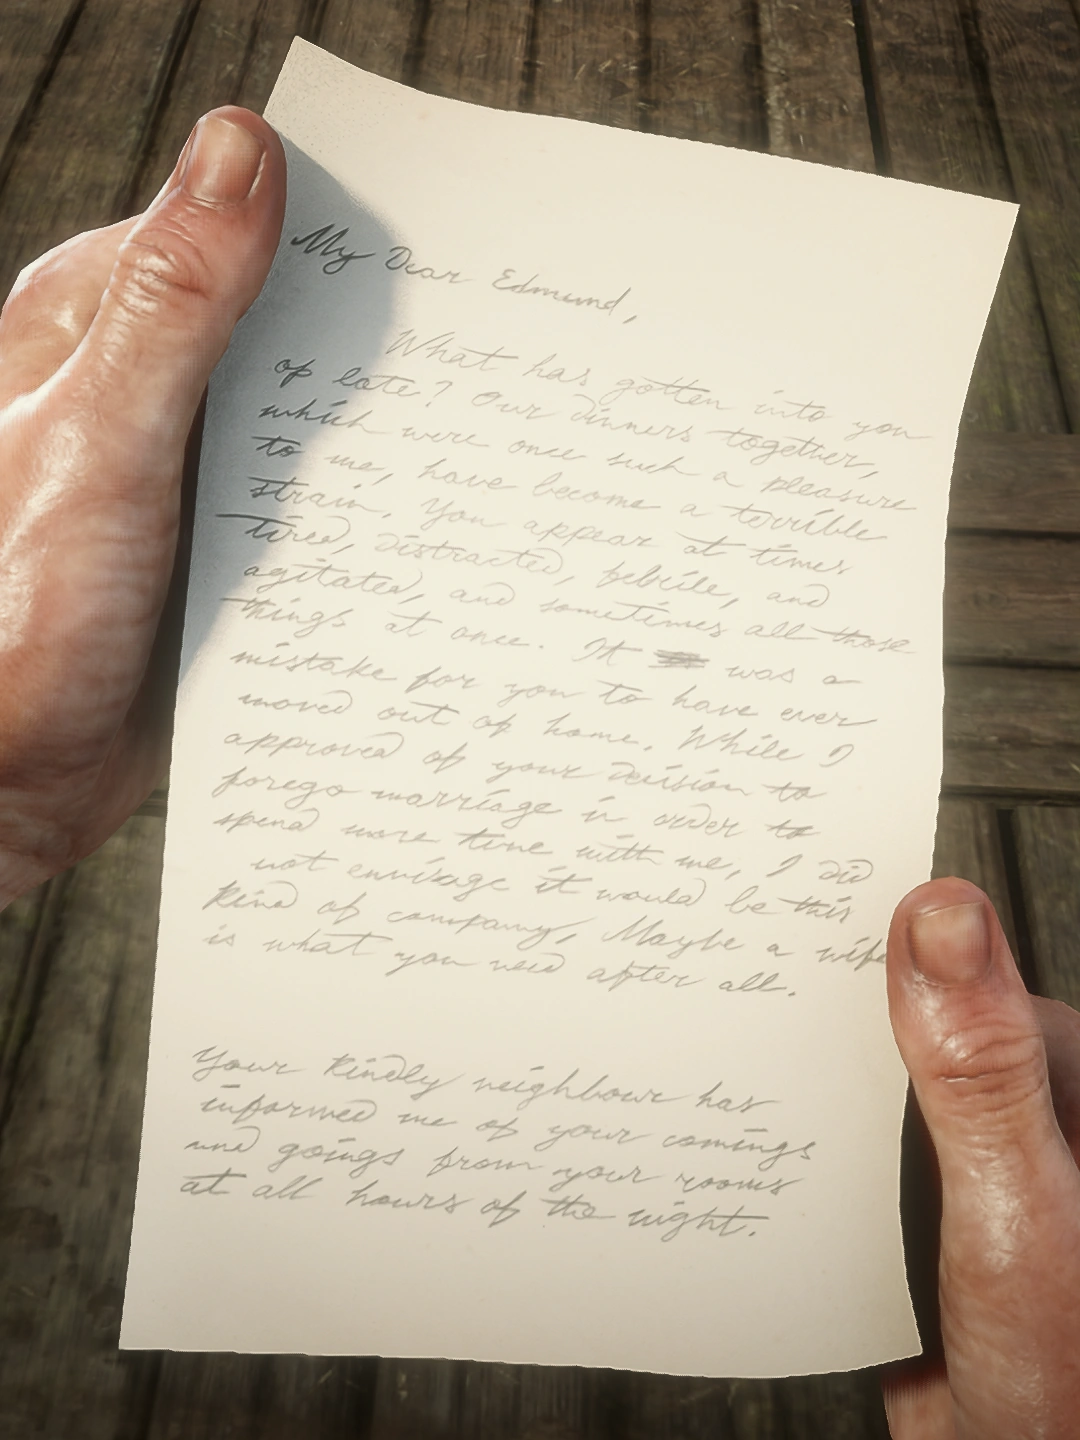 My Dear Edmund,
What has gotten into you
of late? Our dinners together,
which were once such a pleasure
to me, have become a terrible
strain. You appear at times
tired, distracted, febrile, and
agitated, and sometimes all those
things at once. It was a
mistake for you to have ever
moved out of home. While I
approved of your decision to
forego marriage in order to
spend more time with me, I did
not envisage it would be this
kind of company. Maybe a wife
is what you need after all.
Your kindly neighbour has
informed me of your comings
and goings from your rooms
at all hours of the night.